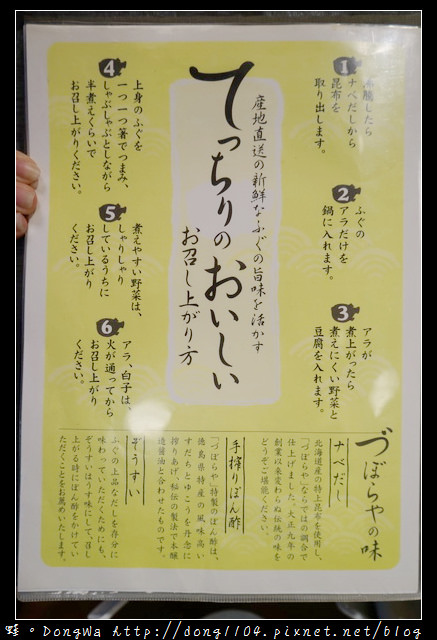 産地直送の新鮮なふぐの旨味を活かす
てっちりのおいしい
お召し上がり方
1
沸騰したら
ナベだしから
昆布を
取り出します。
2
ふぐの
アラだけを
鍋に入れます。
3
アラが
煮上がったら
煮えにくい野菜と
豆腐を入れます。
4
上身のふぐを
一つ一つ箸でつまみ、
しゃぶしゃぶとしながら
半煮えくらいで
お召し上がりください。
5
煮えやすい野菜は、
しゃりしゃり
しているうちに
お召し上がり
ください。
6
アラ、白子は、
火が通ってから
お召し上がり
ください。
づぼらやの味
ナベだし
北海道産の特上昆布を使用し、
「づぼらや」ならではの調合で
仕上げました。大正九年の
創業以来変わらぬ伝統の味を
どうぞご堪能ください。
手搾りぽん酢
「づぼらや」特製のぽん酢は、
徳島県特産の風味高い
すだちとゆこうを丹念に
搾りあげ、秘伝の製法で本醸
造醤油と合わせたものです。
ぞうすい
ふぐの上品なだしを存分に
味わっていただくためにも、
ぞうすいはうす味にして、召し
上がる時にぽん酢をかけてい
ただくことをお薦めいたします。
蛙。DongWa http://dong1104.pixnet.net/blog